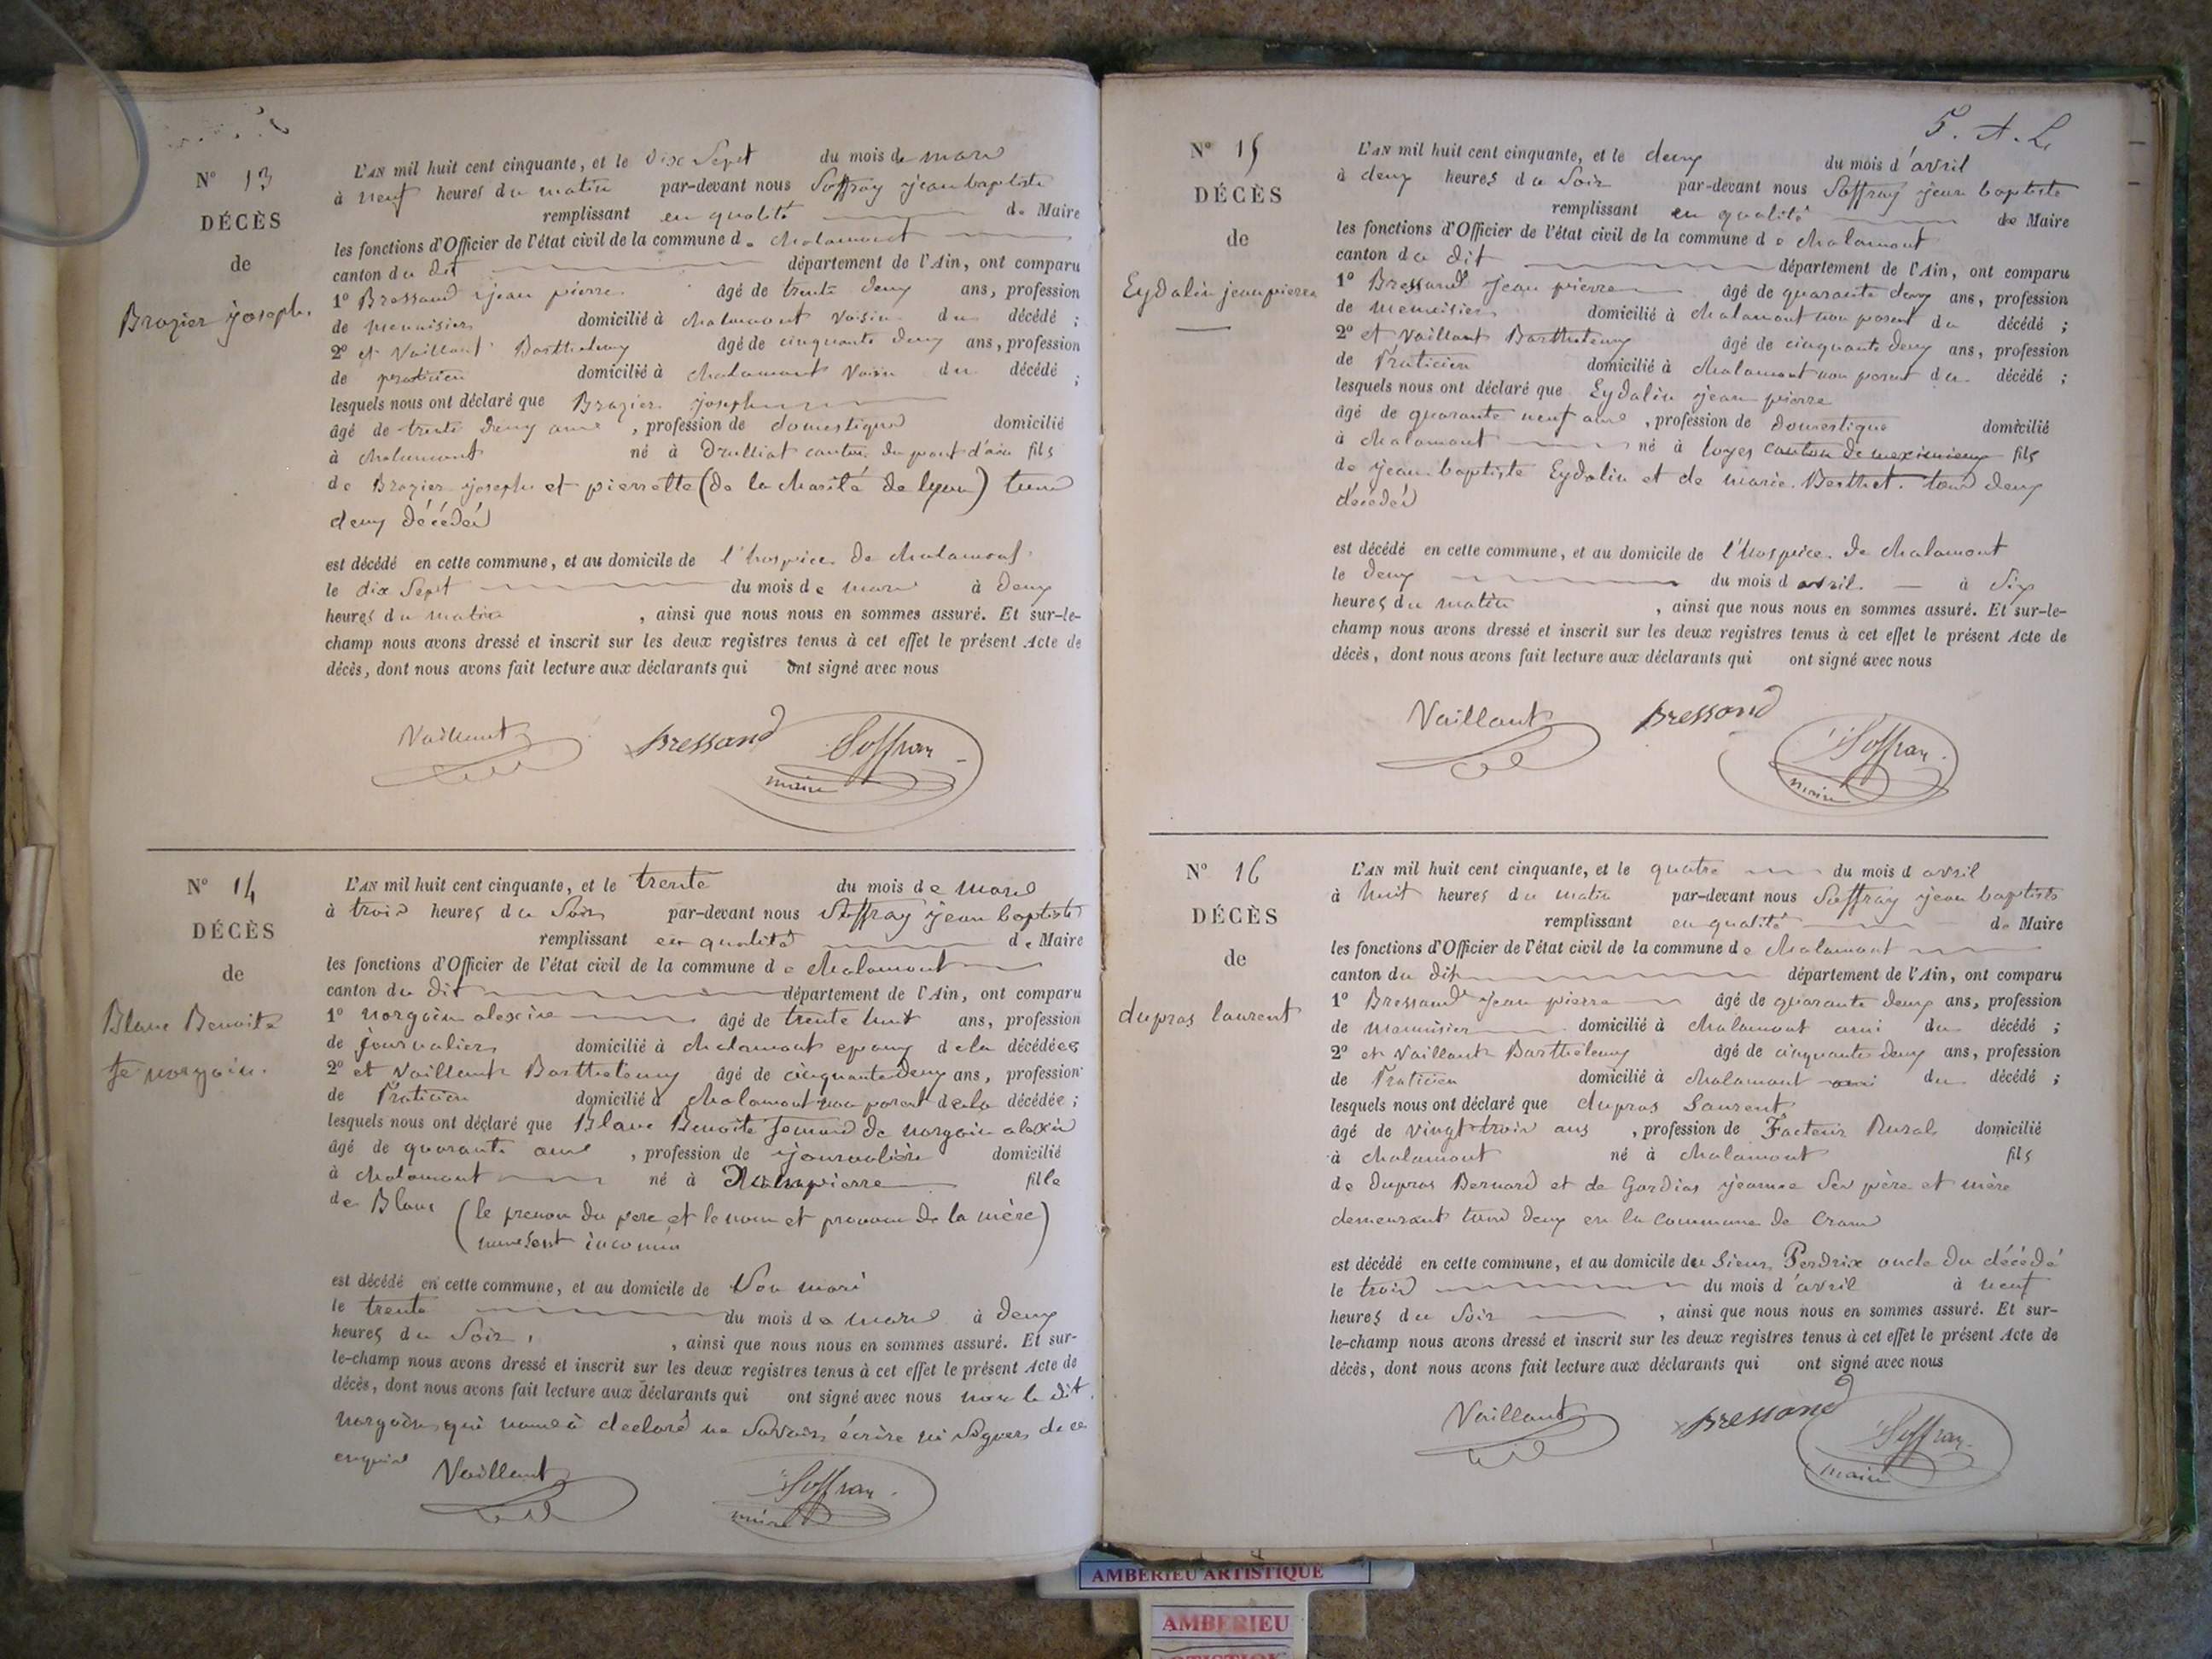 N° 13
DÉCÈS
de
Brazier joseph
L'AN mil huit cent cinquante, et le dix Sept du mois de mars
à neuf heures du matin par-devant nous Soffray jean baptiste
remplissant en qualité de Maire
les fonctions d'Officier de l'état civil de la commune de chalamont
canton du dit département de l'Ain, ont comparu
1° Bressand jean pierre âgé de trente deux ans, profession
de menuisier domicilié à chalamont voisin du décédé ;
2° et Vaillant Barthelemy âgé de cinquante deux ans, profession
de praticien domicilié à chalamont voisin du décédé ;
lesquels nous ont déclaré que Brazier joseph
âgé de trente deux ans, profession de domestique domicilié
à chalamont né à Druillat canton du pont d'ain fils
de Brazier joseph et pierrette (de la charité de lyon) tous
deux décédés
est décédé en cette commune, et au domicile de l'hospice de chalamont
le dix Sept du mois de mars à deux
heures du matin, ainsi que nous nous en sommes assuré. Et sur-le-
champ nous avons dressé et inscrit sur les deux registres tenus à cet effet le présent Acte de
décès, dont nous avons fait lecture aux déclarants qui ont signé avec nous
Vaillant Bressand Soffray
maire
N° 14
DÉCÈS
de
Blanc Benoite
fe norgoin.
L'AN mil huit cent cinquante, et le trente du mois de mars
à trois heures du Soir par-devant nous Soffray jean baptiste
remplissant en qualité de Maire
les fonctions d'Officier de l'état civil de la commune de chalamont
canton du dit département de l'Ain, ont comparu
1° norgoin alexis âgé de trente huit ans, profession
de journalier domicilié à chalamont epoux de la décédée
2° et Vaillant Barthelemy âgé de cinquante deux ans, profession
de Praticien domicilié à chalamont non parent de la décédée ;
lesquels nous ont déclaré que Blanc Benoite femme de norgoin alexis
âgé de quarante ans, profession de journalière domicilié
à chalamont né à fille
de Blanc (le prenom du pere et le nom et prenom de la mère)
nous sont inconnus
est décédé en cette commune, et au domicile de Son mari
le trente du mois de mars à deux
heures du Soir, ainsi que nous nous en sommes assuré. Et sur-
le-champ nous avons dressé et inscrit sur les deux registres tenus à cet effet le présent Acte de
décès, dont nous avons fait lecture aux déclarants qui ont signé avec nous non le dit
norgoin qui nous à declaré ne Savoir écrire ni Signer de ce
enquis
Vaillant Soffray
maire
5. A. L.
N° 15
DÉCÈS
de
Eydalin jean pierre
L'AN mil huit cent cinquante, et le deux du mois d'avril
à deux heures du Soir par-devant nous Soffray jean baptiste
remplissant en qualité de Maire
les fonctions d'Officier de l'état civil de la commune de chalamont
canton du dit département de l'Ain, ont comparu
1° Bressand jean pierre âgé de quarante deux ans, profession
de menuisier domicilié à chalamont non parent du décédé ;
2° et Vaillant Barthelemy âgé de cinquante deux ans, profession
de Praticien domicilié à chalamont non parent du décédé ;
lesquels nous ont déclaré que Eydalin jean pierre
âgé de quarante neuf ans, profession de domestique domicilié
à chalamont né à loyes canton de meximieux fils
de jean baptiste Eydalin et de marie Berthet tous deux
décédés
est décédé en cette commune, et au domicile de l'hospice de chalamont
le deux du mois d avril à Six
heures du matin, ainsi que nous nous en sommes assuré. Et sur-le-
champ nous avons dressé et inscrit sur les deux registres tenus à cet effet le présent Acte de
décès, dont nous avons fait lecture aux déclarants qui ont signé avec nous
Vaillant Bressand Soffray
maire
N° 16
DÉCÈS
de
dupras laurent
L'AN mil huit cent cinquante, et le quatre du mois d avril
à huit heures du matin par-devant nous Soffray jean baptiste
remplissant en qualité de Maire
les fonctions d'Officier de l'état civil de la commune de chalamont
canton du dit département de l'Ain, ont comparu
1° Bressand jean pierre âgé de quarante deux ans, profession
de menuisier domicilié à chalamont ami du décédé ;
2° et Vaillant Barthelemy âgé de cinquante deux ans, profession
de Praticien domicilié à chalamont ami du décédé ;
lesquels nous ont déclaré que dupras Laurent
âgé de vingt trois ans, profession de Facteur Rural domicilié
à chalamont né à chalamont fils
de dupras Bernard et de Gordias jeanne Ses père et mère
demeurant tous deux en la commune de Crans
est décédé en cette commune, et au domicile du Sieur Perdrix oncle du décédé
le trois du mois d'avril à neuf
heures du Soir, ainsi que nous nous en sommes assuré. Et sur-
le-champ nous avons dressé et inscrit sur les deux registres tenus à cet effet le présent Acte de
décès, dont nous avons fait lecture aux déclarants qui ont signé avec nous
Vaillant Bressand Soffray
maire
AMBERIEU ARTISTIQUE
AMBERIEU
ARTISTIQUE